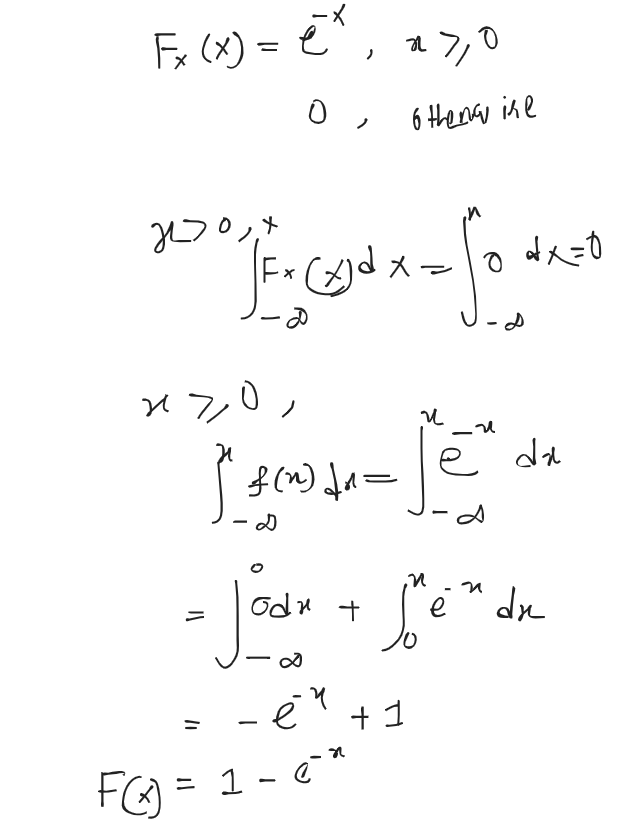 Fₓ(x) = e⁻ˣ, x ≥ 0
0, otherwise
x > 0, ∫_{-∞}^{x} Fₓ(x) dx = ∫_{-∞}^{x} 0 dx = 0
x ≥ 0,
∫_{-∞}^{x} f(x) dx = ∫_{-∞}^{x} e⁻ˣ dx
= ∫_{-∞}^{0} 0 dx + ∫_{0}^{x} e⁻ˣ dx
= - e⁻ˣ + 1
F(x) = 1 - e⁻ˣ